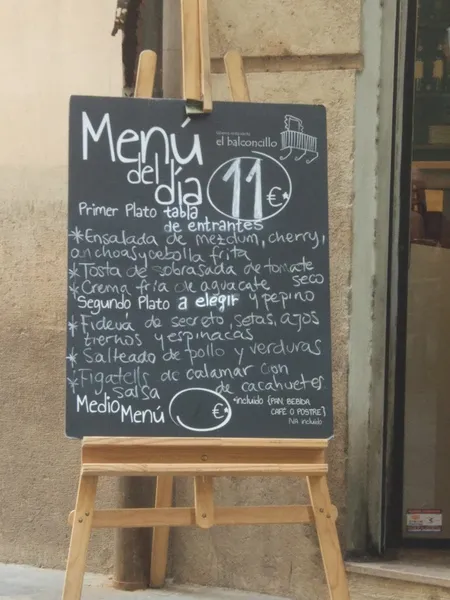 Menú
del
día
el balconcillo
11 €*
Primer Plato tabla
de entrantes
*Ensalada de mezclum, cherry,
anchoas y cebolla frita
*Tosta de sobrasada de tomate
seco
*Crema fría de aguacate
y pepino
Segundo Plato a elegir
*Fideuá de secreto, setas, ajos
tiernos y espinacas
*Salteado de pollo y verduras
*Figatells de calamar con
salsa de cacahuetes
Medio
Menú €*
*incluido (PAN, BEBIDA
CAFÉ O POSTRE)
IVA incluido